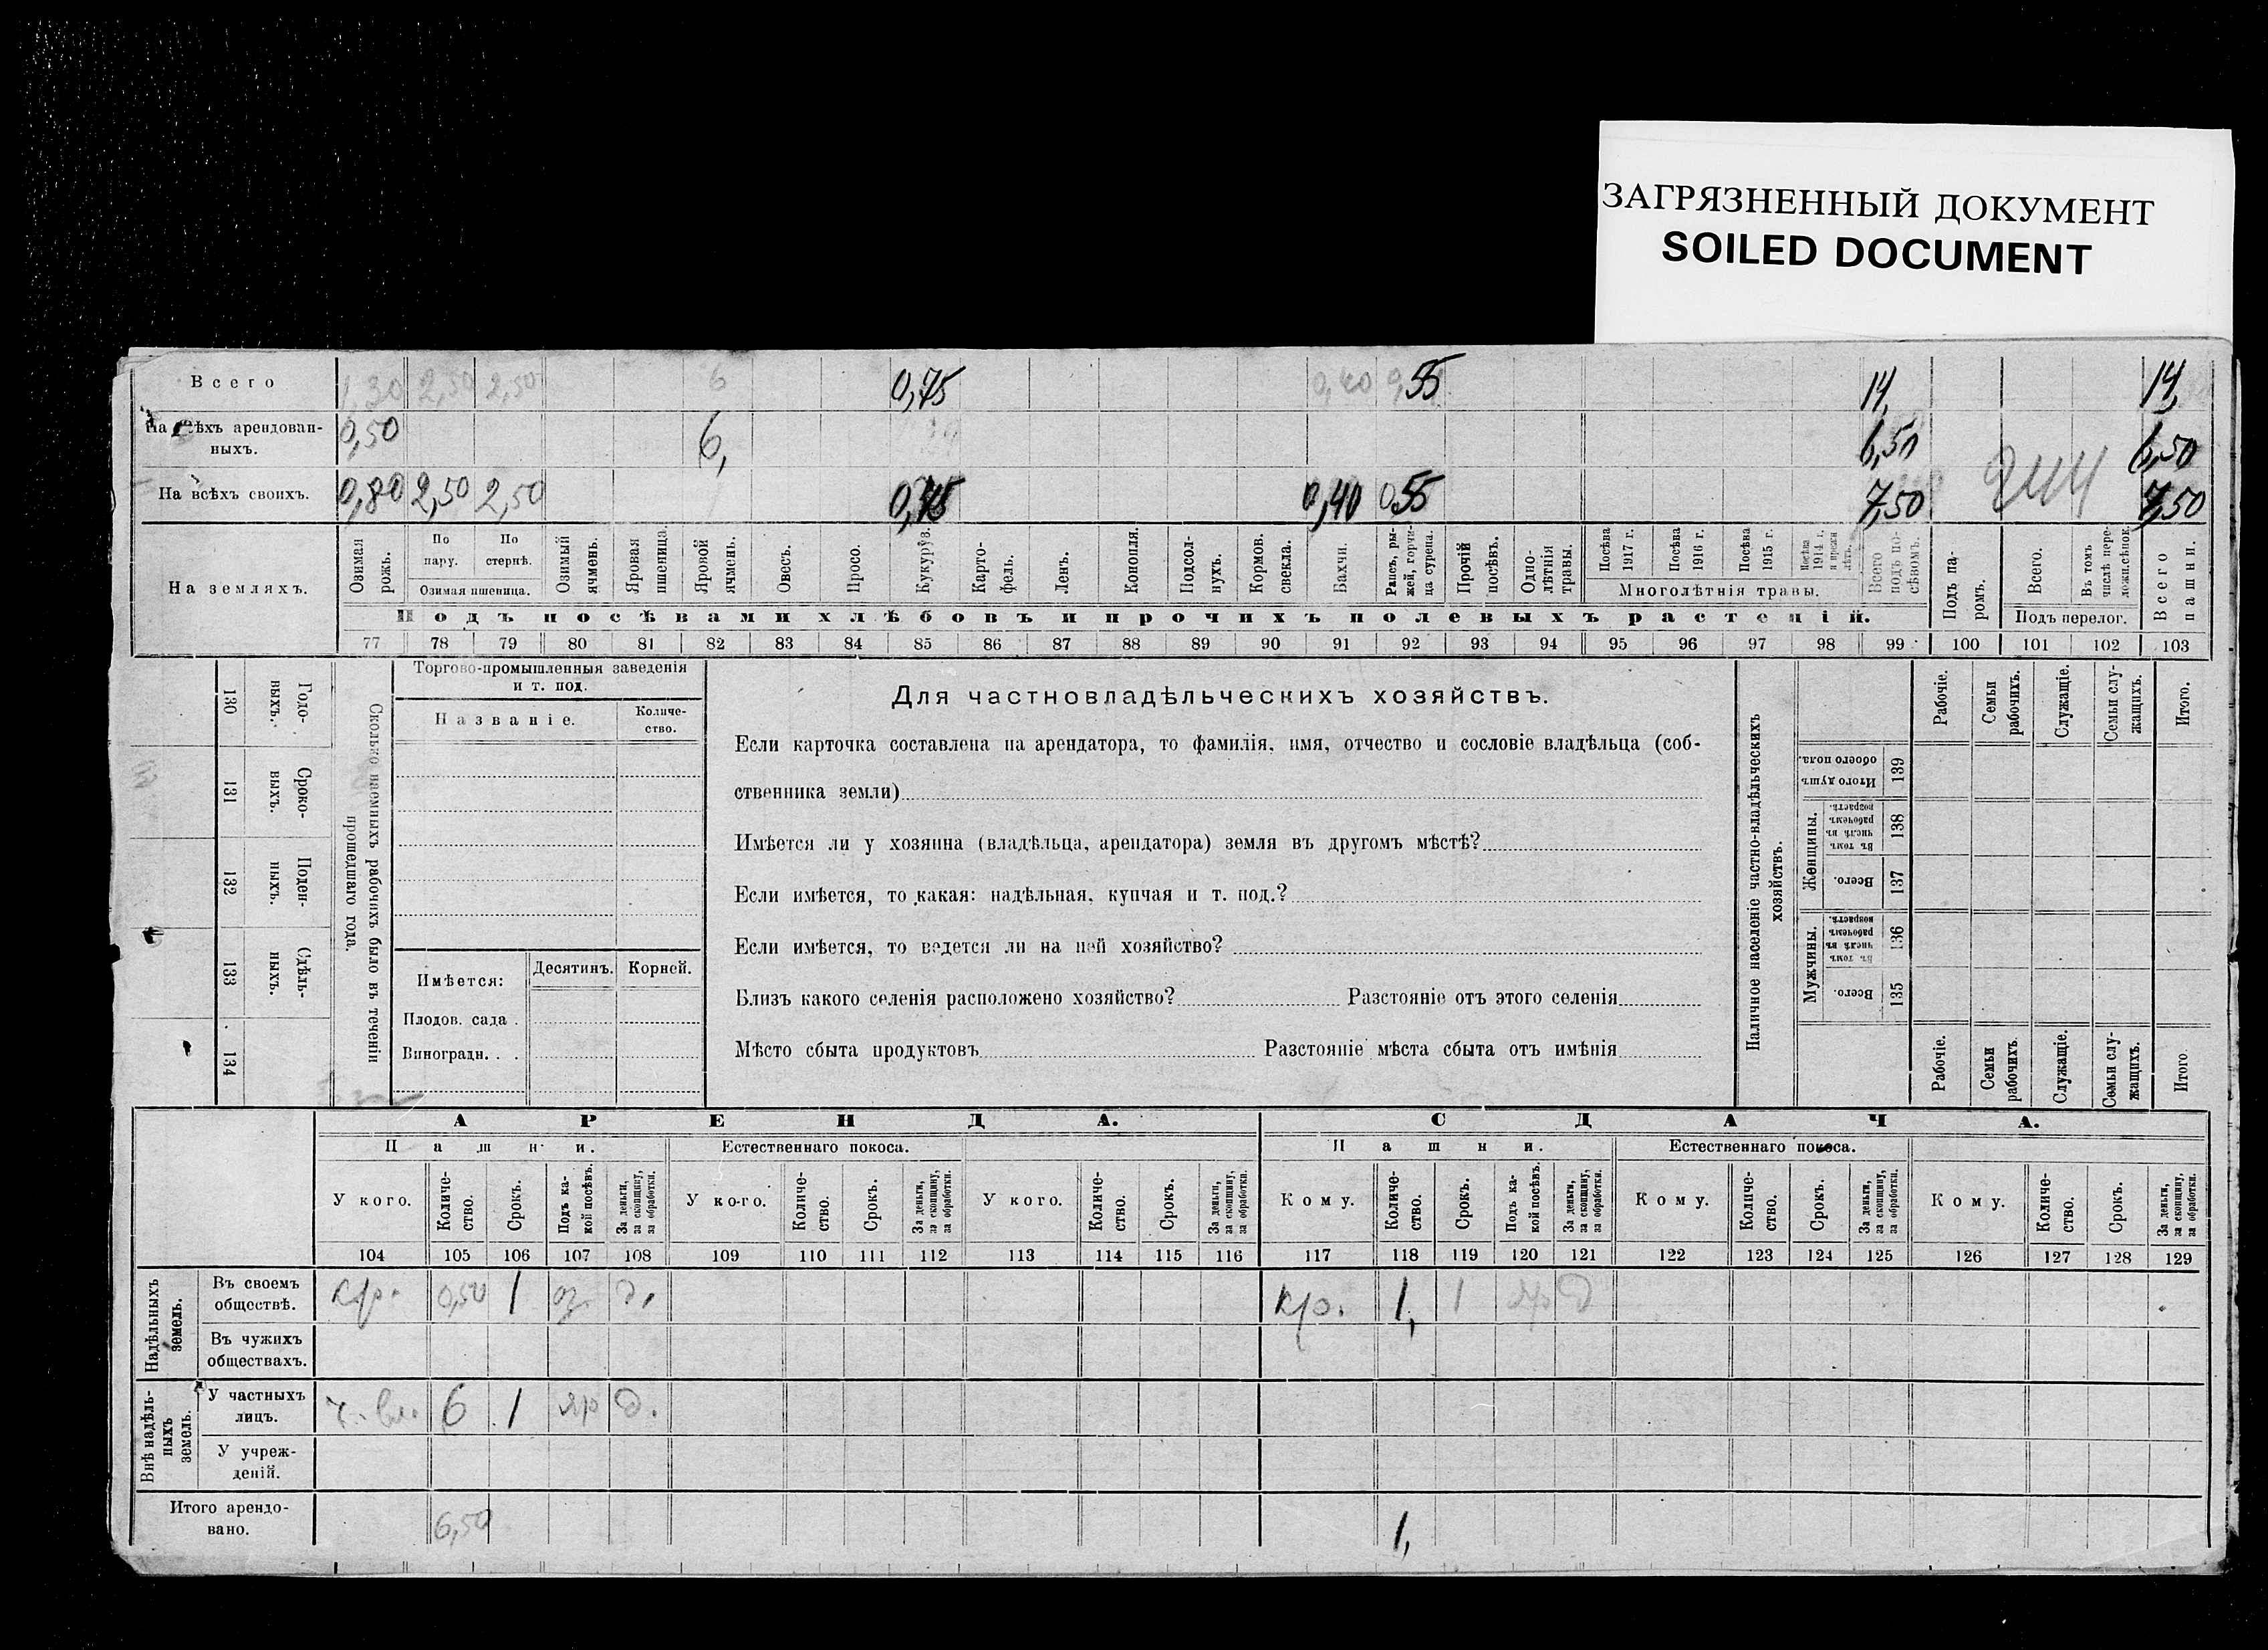 ЗАГРЯЗНЕННЫЙ ДОКУМЕНТ
SOILED DOCUMENT
Всего 1,30 2,50 2,50 6 0,75 0,40 0,55 14, 14,
На всѣхъ арендован-
ныхъ. 0,50 6, 6,50 6,50
На всѣхъ своихъ. 0,80 2,50 2,50 0,75 0,40 0,55 7,50 7,50
На земляхъ.
Озимая рожь.
По пару.
По стернѣ.
Озимая пшеница.
Озимый ячмень.
Яровая пшеница.
Яровой ячмень.
Овесъ.
Просо.
Кукуруз.
Карто-
фель.
Ленъ.
Конопля.
Подсол-
нухъ.
Кормов.
свекла.
Бахчи.
Рапсъ, ры-
жей, горчи-
ца сурепа.
Прочій
посѣвъ.
Одно-
лѣтнія
травы.
Посѣва 1917 г.
Посѣва 1916 г.
Посѣва 1915 г.
Посѣва 1914 г. и прежн лѣтъ.
Многолѣтнія травы.
Всего подъ по-
сѣвомъ.
Подъ па-
ромъ.
Всего.
Въ томъ числѣ пере-
лож.сѣнок.
Подъ перелог.
Всего пашни.
Подъ посѣвами хлѣбовъ и прочихъ полевыхъ растеній.
77 78 79 80 81 82 83 84 85 86 87 88 89 90 91 92 93 94 95 96 97 98 99 100 101 102 103
130 Годо-
выхъ.
131 Сроко-
выхъ.
132 Поден-
ныхъ.
133 Сдѣль-
ныхъ.
134
Сколько наемныхъ рабочихъ было въ теченіи
прошедшаго года.
Торгово-промышленныя заведенія
и т. под.
Названіе.
Количе-
ство.
Имѣется: Десятинъ. Корней.
Плодов. сада .
Виноградн. . .
Для частновладѣльческихъ хозяйствъ.
Если карточка составлена на арендатора, то фамилія, имя, отчество и сословіе владѣльца (соб-
ственника земли)
Имѣется ли у хозяина (владѣльца, арендатора) земля въ другомъ мѣстѣ?
Если имѣется, то какая: надѣльная, купчая и т. под.?
Если имѣется, то ведется ли на ней хозяйство?
Близъ какого селенія расположено хозяйство? Разстояніе отъ этого селенія
Мѣсто сбыта продуктовъ Разстояніе мѣста сбыта отъ имѣнія
Наличное населеніе частно-владѣльческихъ
хозяйствъ.
Рабочіе.
Семьи рабочихъ.
Служащіе.
Семьи слу-
жащихъ.
Итого.
Итого душъ
обоего пола. 139
Женщины.
въ томъ числѣ въ рабочемъ возрастѣ. 138
Всего. 137
Мужчины.
въ томъ числѣ въ рабочемъ возрастѣ. 136
Всего. 135
Рабочіе.
Семьи рабочихъ.
Служащіе.
Семьи слу-
жащихъ.
Итого
АРЕНДА. СДАЧА.
Пашни. Естественнаго покоса. Пашни. Естественнаго покоса.
У кого. Количе-
ство. Срокъ. Подъ ка-
кой посѣвъ. За деньги,
за скопщину,
за обработки.
У ко-го. Количе-
ство. Срокъ. За деньги,
за скопщину,
за обработки.
У кого. Количе-
ство. Срокъ. За деньги,
за скопщину,
за обработки.
Кому. Количе-
ство. Срокъ. Подъ ка-
кой посѣвъ. За деньги,
за скопщину,
за обработки.
Кому. Количе-
ство. Срокъ. За деньги,
за скопщину,
за обработки.
Кому. Количе-
ство. Срокъ. За деньги,
за скопщину,
за обработки.
104 105 106 107 108 109 110 111 112 113 114 115 116 117 118 119 120 121 122 123 124 125 126 127 128 129
Надѣльныхъ
земель.
Въ своемъ
обществѣ. кр. 0,50 1 оз. д. кр. 1, 1 яр д
Въ чужихъ
обществахъ.
Внѣ надѣль-
ныхъ
земель.
У частныхъ
лицъ. ч. вл. 6 1 яр д.
У учреж-
деній.
Итого арендо-
вано. 6,50 1,